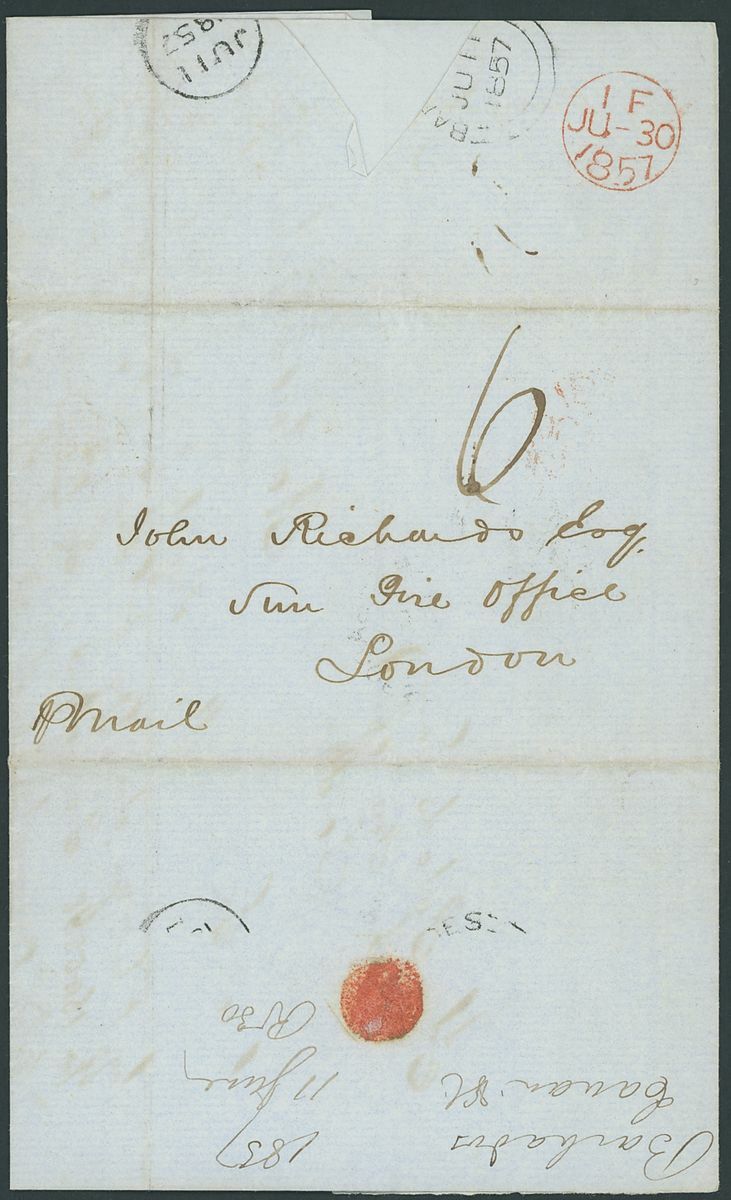 JU 11
1857
BA
JU 11
1857
1 F
JU-30
1857
6
John Richards Esq.
Sun Fire Office
London
P Mail
ES
Barbados
1857
11 June
R 30